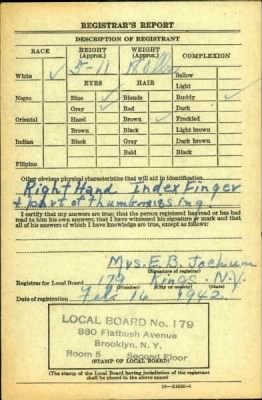 REGISTRAR'S REPORT
DESCRIPTION OF REGISTRANT
RACE HEIGHT (Approx.) WEIGHT (Approx.) COMPLEXION
White ✓ 5-11 Sallow
EYES HAIR Light
Negro Blue ✓ Blonde Ruddy ✓
Gray Red Dark
Oriental Hazel Brown ✓ Freckled
Brown Black Light brown
Indian Black Gray Dark brown
Bald Black
Filipino
Other obvious physical characteristics that will aid in identification
Right Hand index Finger
& part of thumb missing!
I certify that my answers are true; that the person registered has read or has had
read to him his own answers; that I have witnessed his signature or mark and that
all of his answers of which I have knowledge are true, except as follows:
Mrs. E. B.
(Signature of registrar)
Registrar for Local Board 179 Kings N.Y.
(Number) (City or county) (State)
Date of registration Feb 16 1942
LOCAL BOARD No. 179
880 Flatbush Avenue
Brooklyn, N. Y.
Room 5 Second Floor
(STAMP OF LOCAL BOARD)
(The stamp of the Local Board having jurisdiction of the registrant
shall be placed in the above space)